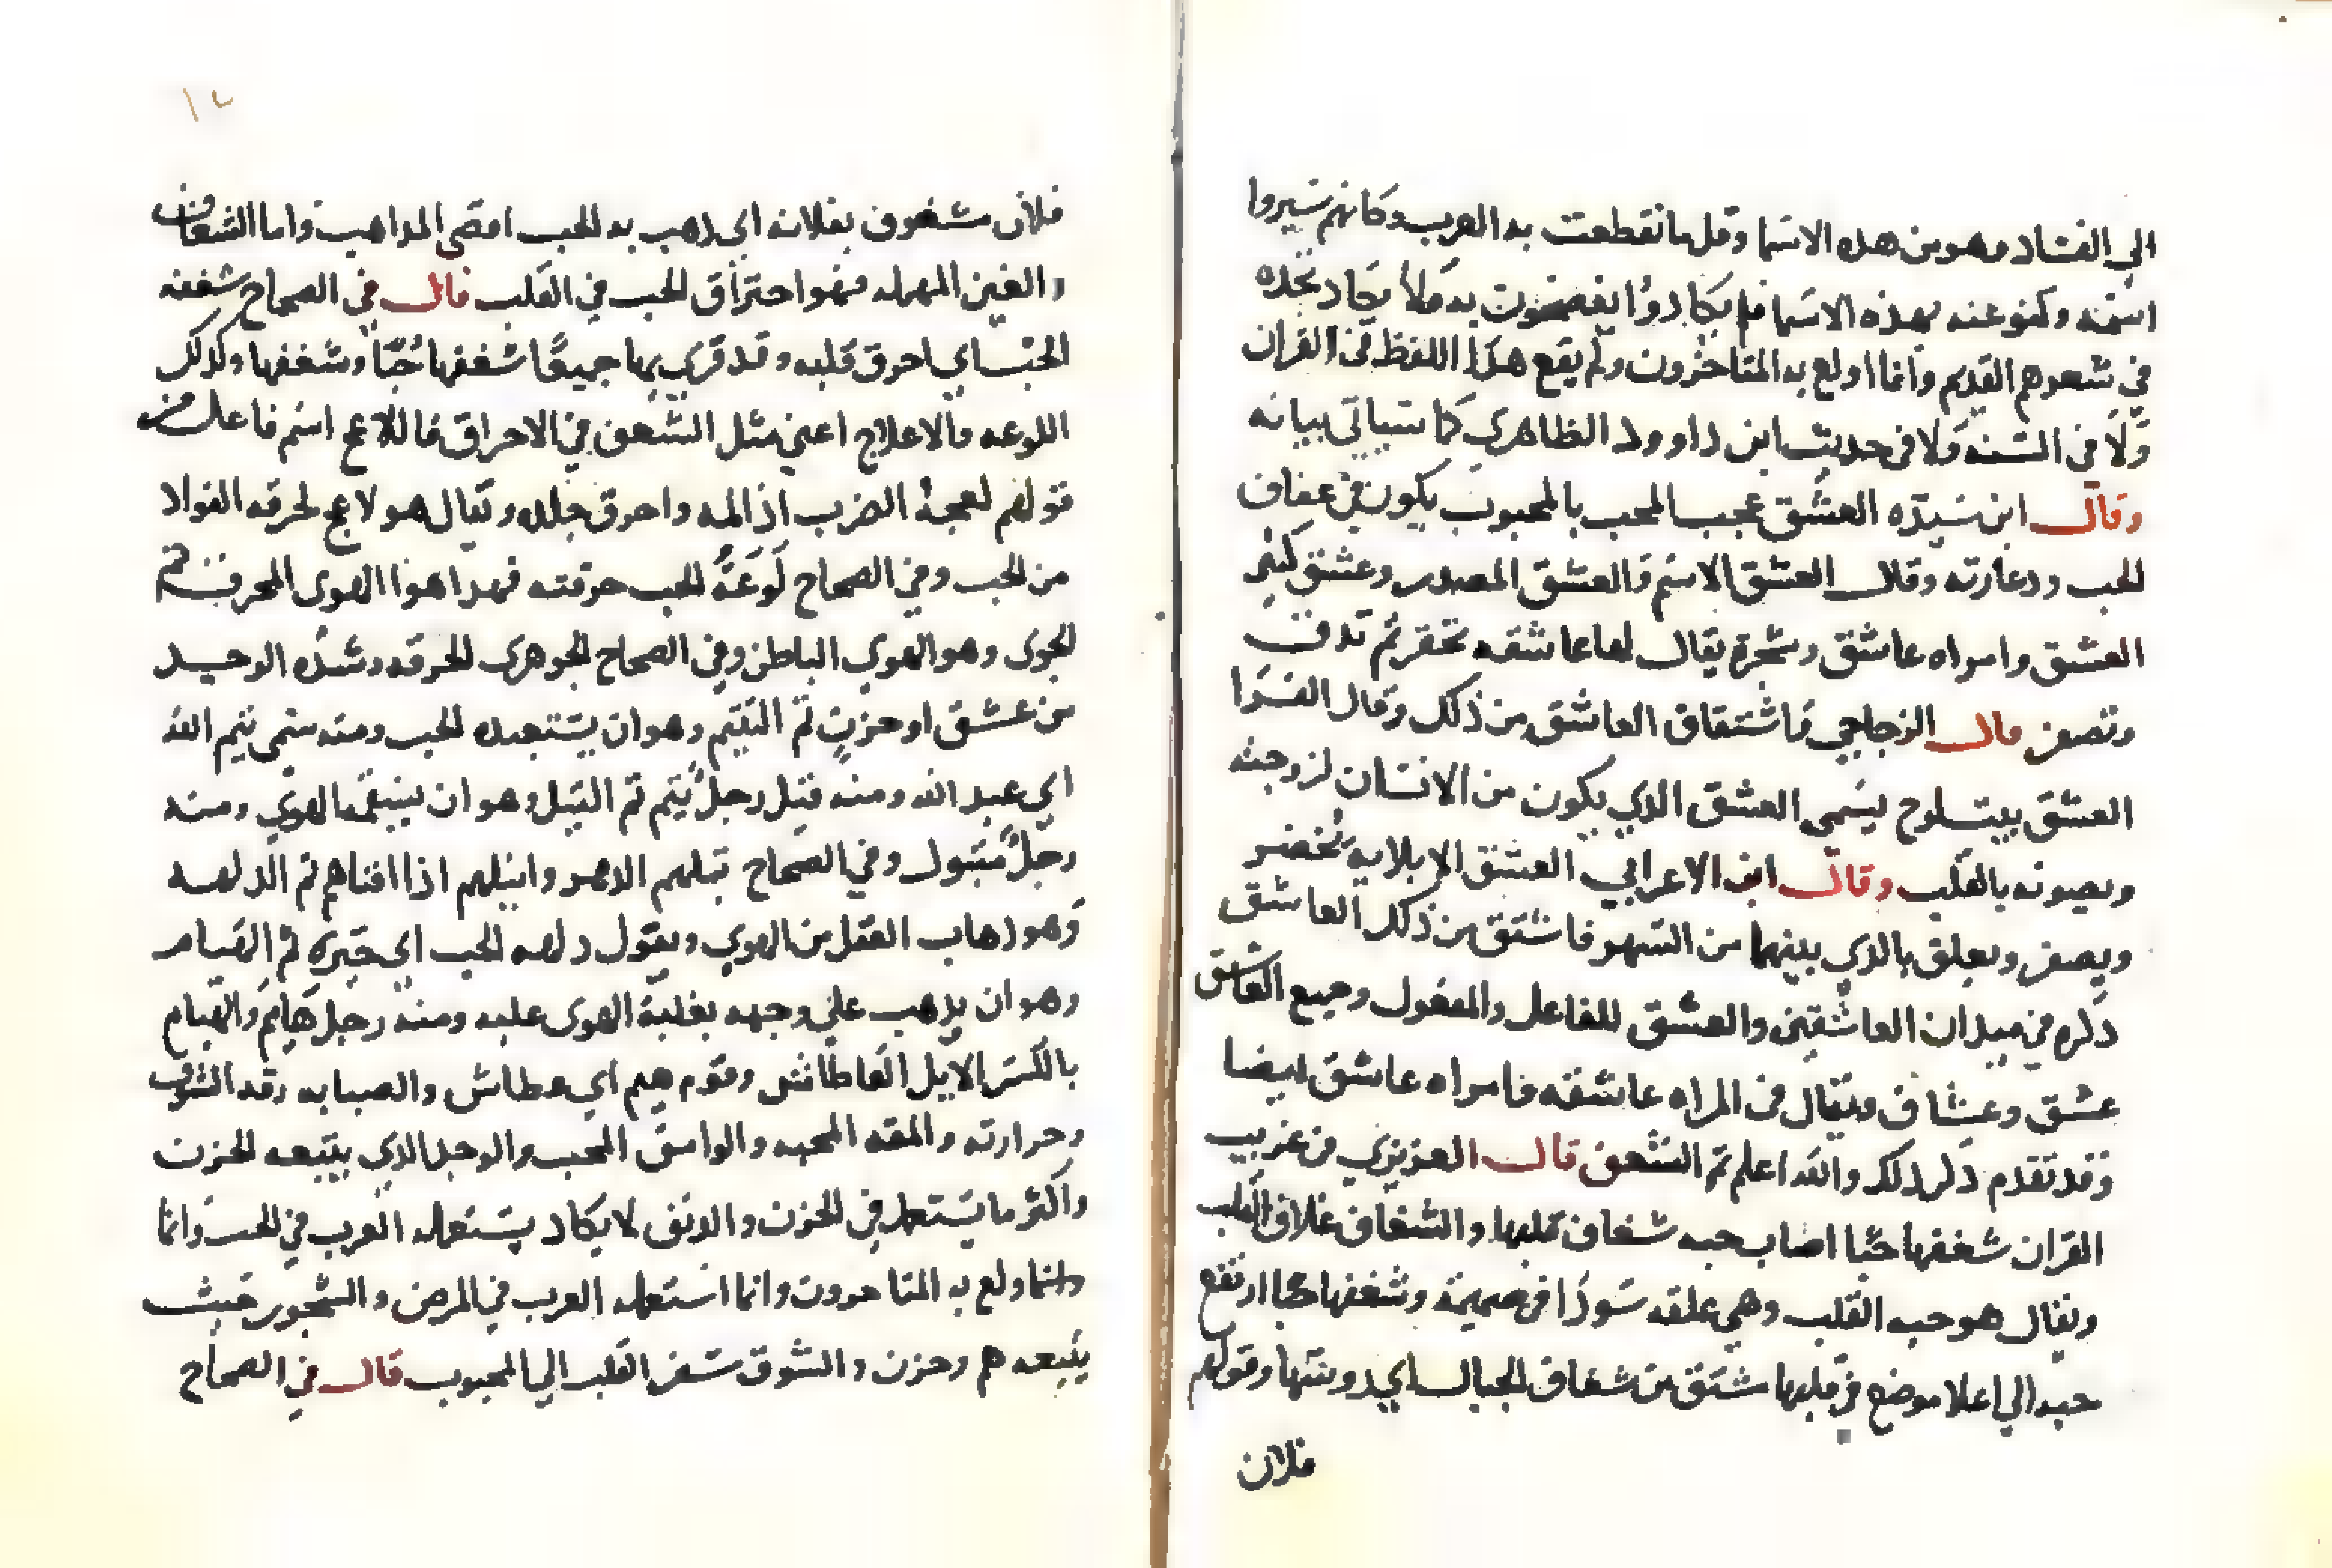 الى الفساد وهو من هذه الاسما وقل ما نقطعت به العرب وكانهم ستروا
اسمه وكنو عنه بهذه الاسما فلم يكادوا يفصحون به ولا يكاد تجده
في شعرهم القديم وانما اولع به المتاخرون ولم يقع هذا اللفظ في القران
ولا في السنه ولا في حديث ابن داوود الظاهري كما سياتي بيانه
وقال ابن سيده العشق عجب المحب بالمحبوب يكون في عفاف
الحب ودعارته وقال العشق الاسم والعشق المصدر وعشق كثير
العشق وامراه عاشق وشجرة يقال لها عاشقه تخضر ثم تدق
وتصفر قال الزجاجي واشتقاق العاشق من ذلك وقال الفرا
العشق يسمى العشق الذي يكون من الانسان لزوجته
بالقلب وقال ابن الاعرابي العشق تخضر
ويصفر ويعلق بالذي بينهما من الشهو فاشتق من ذلك العاشق
ذكره في ميدان العاشقين والعشق للفاعل والمفعول وجميع العاشق
عشق وعشاق ويقال في المراه عاشقه وامراه عاشق ايضا
وقد تقدم ذكر ذلك والله اعلم ثم الشعف قال العزيزي في غريب
القران شغفها حبا اصاب حبه شغاف قلبها والشغاف غلاف القلب
ويقال هو حبه القلب وهي علقه سودا في صميمه وشغفها حبا ارتفع
حبه الي اعلا موضع في قلبها مشتق من شغاف الجبال اي روسها وقولهم
فلان
١٢
فلان مشغوف بفلانه اي ذهب به الحب اقصى المذاهب واما الشعاف
والعين المهمله فهو احتراق الحب في القلب قال في الصحاح شغفه
الحب اي احرق قلبه وقد قري بها جميعا شغفها حبا وشعفها وكذلك
اللوعه والاعلاج اعني مثل الشعف في الاحراق فاللاعج اسم فاعل من
قولهم لعجه الضرب اذ المه واحرق جلده ويقال هو لاعج لحرقه الفواد
من الحب وفي الصحاح لوعة الحب حرقته فهذا هو الهوى المحرق ثم
الجوى وهو الهوي الباطن وفي الصحاح الجوهرى الحرقه وشده الوجد
من عشق او حزن ثم التيتم وهو ان يستعبده الحب ومنه سمي تيم الله
اي عبد الله ومنه قيل رجل متيم ثم التبل وهو ان يسقمه الهوي ومنه
رجل متبول وفي الصحاح تبلهم الدهر واتبلهم اذا افناهم ثم الدلهه
وهو ذهاب العقل من الهوي ويقول دلهه الحب اي حيره ثم الهيام
وهو ان يذهب علي وجهه بغلبة الهوى عليه ومنه رجل هايم والهيام
بالكسر الابل العاطش وقوم هيم اي عطاش والصبابه رقه الشوق
وحرارته والمقه المحبه والوامق المحب والوجد الذي يتبعه الحزن
واكثر ما يستعمل في الحزن والدنف لا يكاد يستعمله العرب في الحب وانما
ولع به المتاخرون وانما استعمله العرب في المرض والشجو حب
يتبعه هم وحزن والشوق سفر القلب الي المحبوب قال في الصحاح